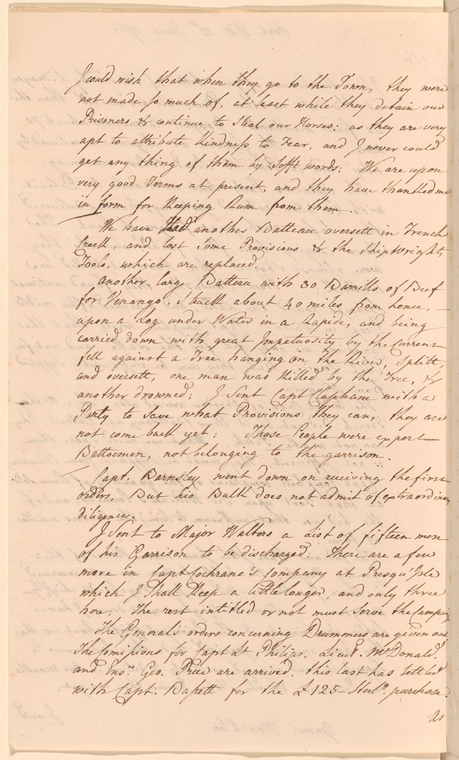 I could wish that when they go to the Town, they were
not made so much of, at least while they detain our
Prisoners & continue to Steal our Horses; as they are very
apt to attribute kindness to Fear, and I never could
get any thing of them by Sofft words; We are upon
very good Terms at present, and they have thanked me
in form for keeping Rum from them.
We have had another Batteau oversett in French
Creek, and lost some Provisions & the Shipwrights
Tools, which are replaced
another large Batteau with 30 Barrells of Beef
for Venango, Struck about 40 miles from hence,
upon a Log under Water in a Rapide, and being
carried down with great Impetuosity by the current
fell against a Tree hanging on the River, Split,
and oversett, one man was killed by the Tree, &
another drowned; I Sent Capt Clapham with a
Party to Save what Provisions they can, they are
not come back yet: Those People were expert
Battoemen, not belonging to the garrison.
Capt. Barnsley went down on receiving the first
orders. But his Bulk does not admit of extraordinary
diligence.
I Sent to Major Walters a List of fifteen men
of his Garrison to be discharged; There are a few
more in Capt Cochrane's Company at Presqu'Isle
which I Shall keep a little longer, and only three
here; The rest intitled or not must Serve the Campaign
The General's orders concerning Drummers are given out
The Comissions for Capt Lt Philips, Lieut. McDonald
and Ens. Geo. Price are arrived, this last has settled
with Capt. Bassett for the £125 Sterl. purchase
as